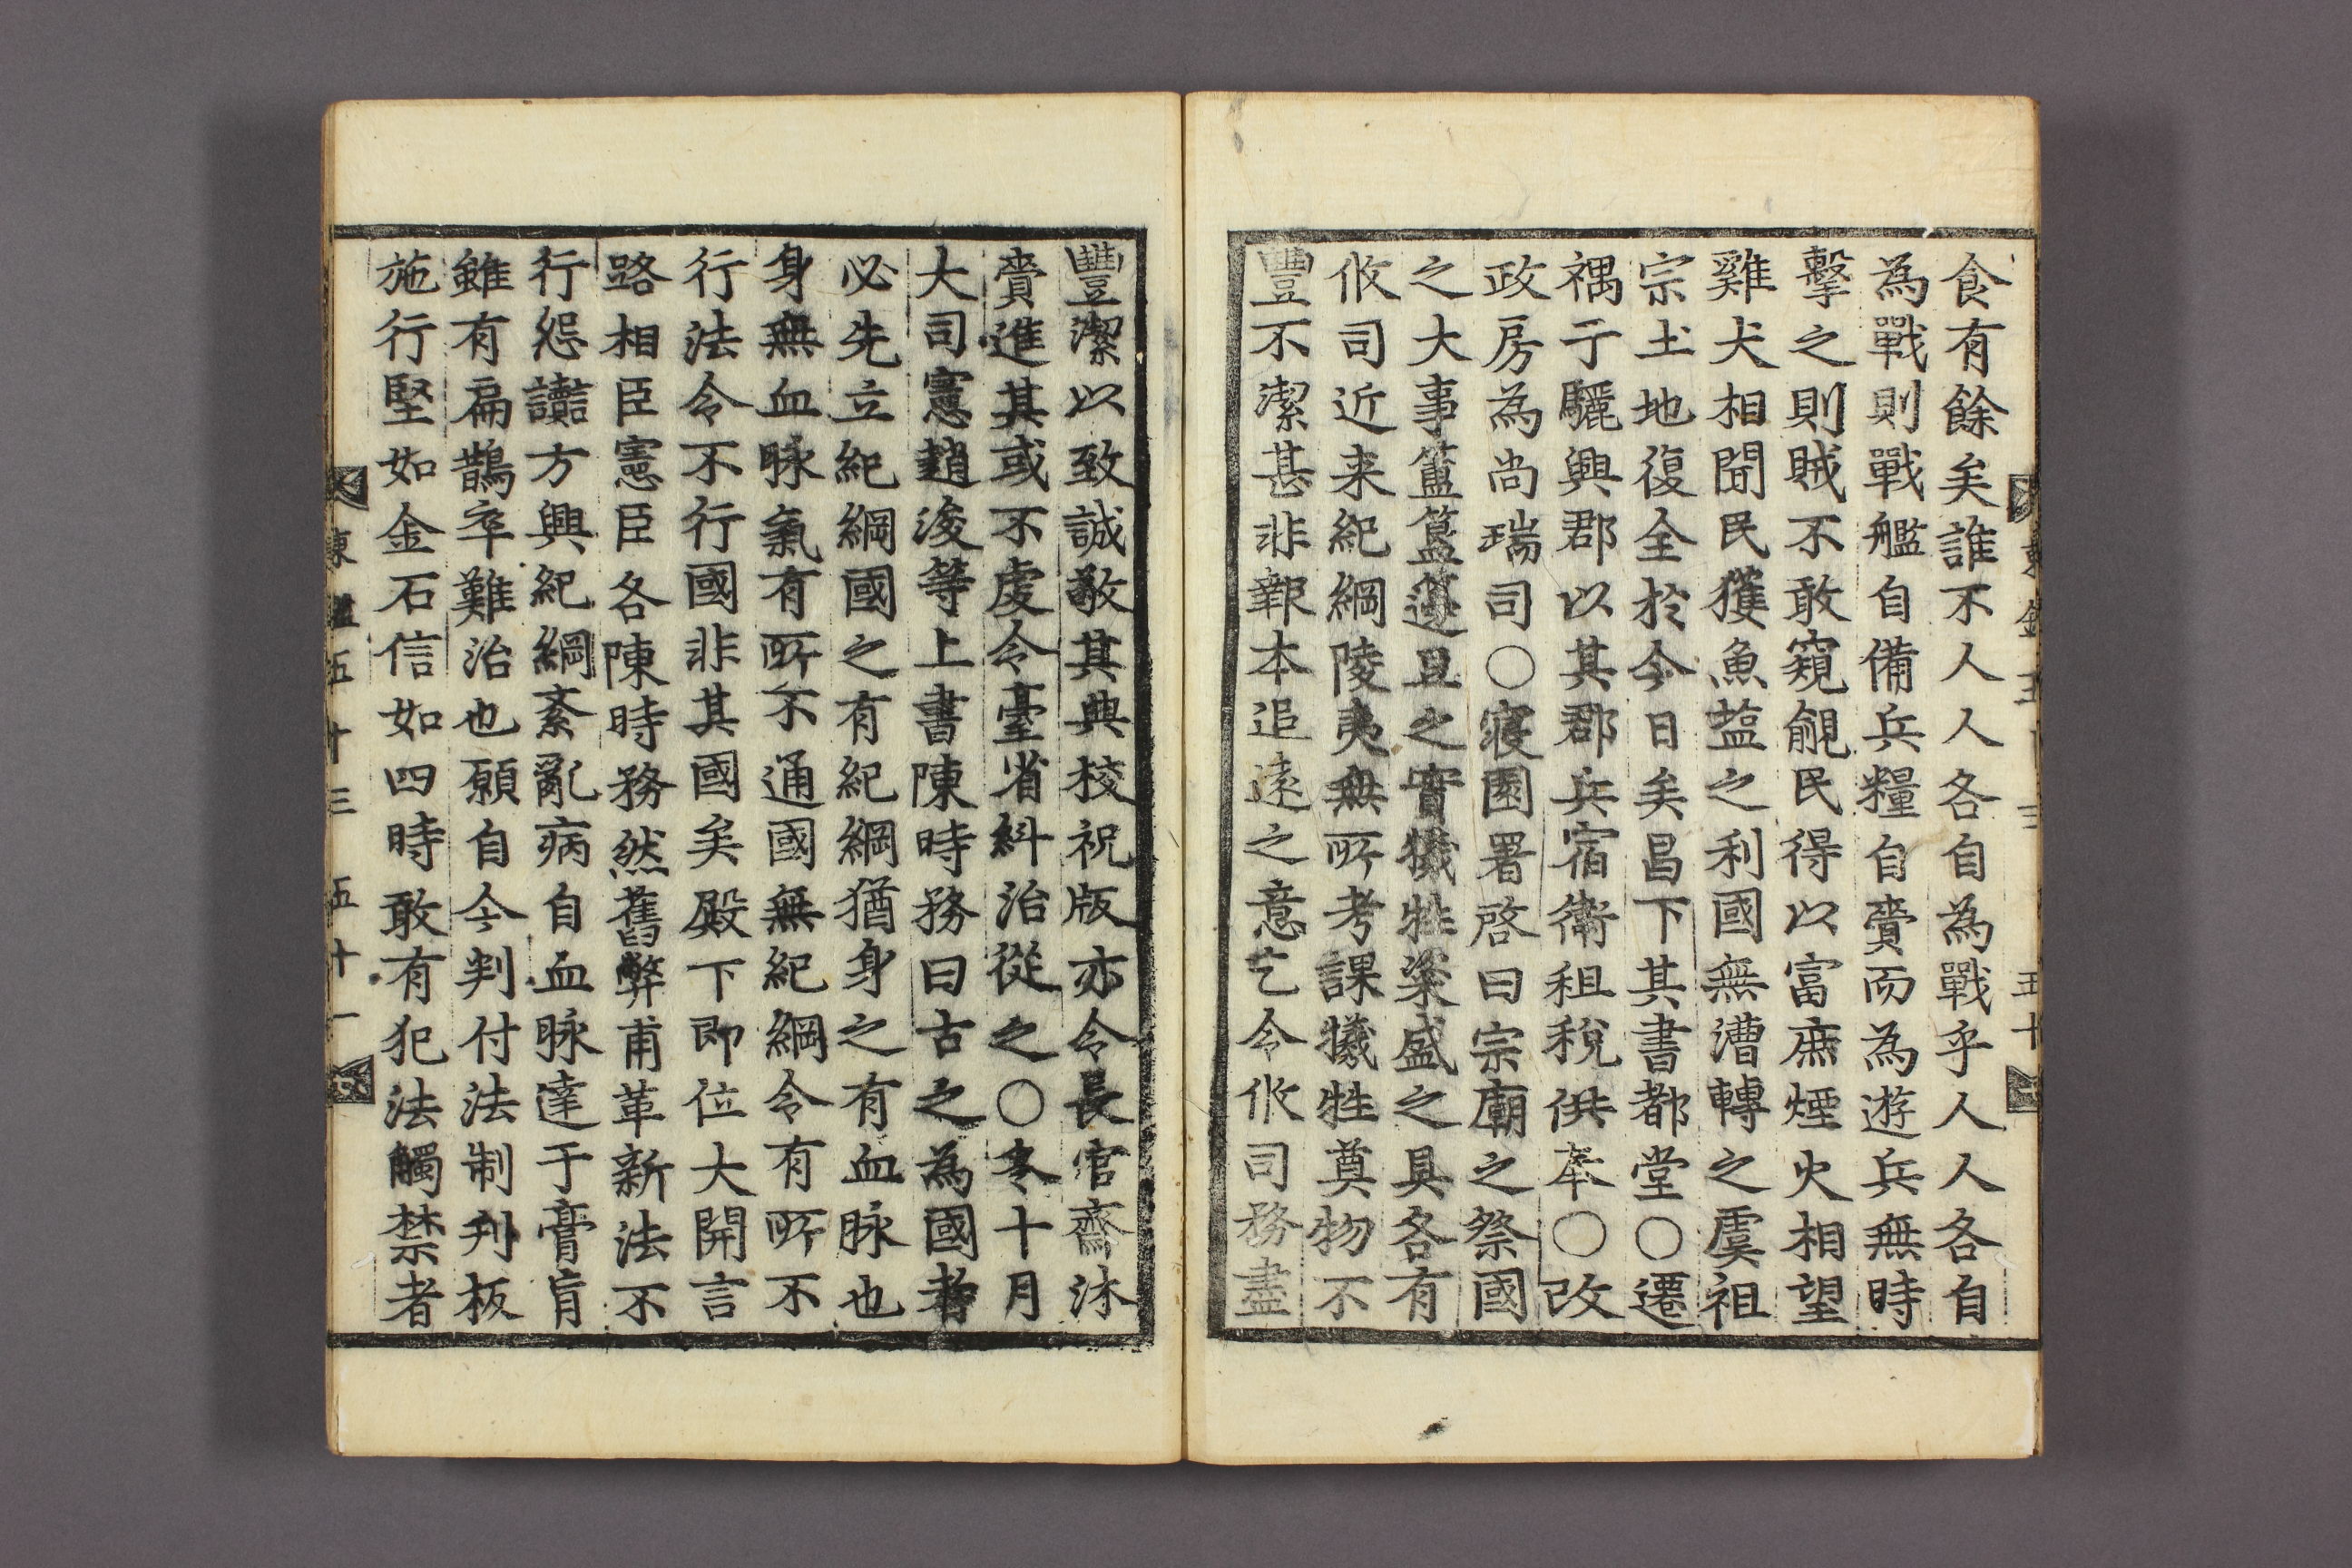 食有餘矣誰不人人各自為戰乎人人各自
為戰則戰艦自備兵糧自賷而為遊兵無時
擊之則賊不敢窺覦民得以富庶煙火相望
雞犬相聞民獲魚塩之利國無漕轉之虞祖
宗土地復全於今日矣昌下其書都堂○遷
禑于驪興郡以其郡兵宿衛租稅供奉○改
政房為尚瑞司○寢園署啓曰宗廟之祭國
之大事簠簋籩豆之實犧牲粢盛之具各有
攸司近来紀綱陵夷無所考課犧牲奠物不
豐不潔甚非報本追遠之意乞令攸司務盡
豐潔以致誠敬其典校祝版亦令長官齋沐
賷進其或不虔令臺省糾治從之○冬十月
大司憲趙浚等上書陳時務曰古之為國者
必先立紀綱國之有紀綱猶身之有血脉也
身無血脉氣有所不通國無紀綱令有所不
行法令不行國非其國矣殿下即位大開言
路相臣憲臣各陳時務然舊弊甫革新法不
行怨讟方興紀綱紊亂病自血脉達于膏肓
雖有扁鵲卒難治也願自今判付法制刋板
施行堅如金石信如四時敢有犯法觸禁者
東 五十三 五十一